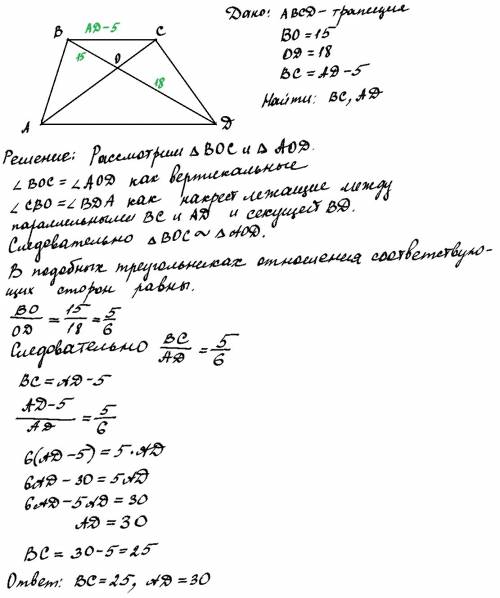 Дано: ABCD – трапеция
BO = 15
OD = 18
BC = AD – 5
Найти: BC, AD
B AD – 5 C
15 O 18
A D
Решение: Рассмотрим △ BOC и △ AOD.
∠ BOC = ∠ AOD как вертикальные
∠ CBO = ∠ BDA как накрест лежащие между
параллельными BC и AD и секущей BD.
Следовательно △ BOC ∾ △ AOD.
В подобных треугольниках отношения соответствую-
щих сторон равны.
BO/OD = 15/18 = 5/6
Следовательно BC/AD = 5/6
BC = AD – 5
AD – 5/AD = 5/6
6(AD – 5) = 5 · AD
6AD – 30 = 5AD
6AD – 5AD = 30
AD = 30
BC = 30 – 5 = 25
Ответ: BC = 25, AD = 30